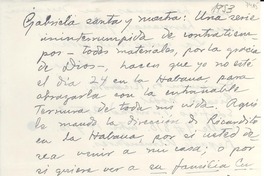 1953
Gabriela santa y nuestra: Una serie
ininterrumpida de contratiem-
pos - todos materiales, por la gracia
de Dios -, hacen que yo no esté
el día 24 en la Habana, para
abrazarla con la entrañable
ternura de toda mi vida. Aquí
le mando la dirección de Ricardito
en la Habana, por si usted de-
sea venir a mi casa; o por
si quiere ver a su familia Cu